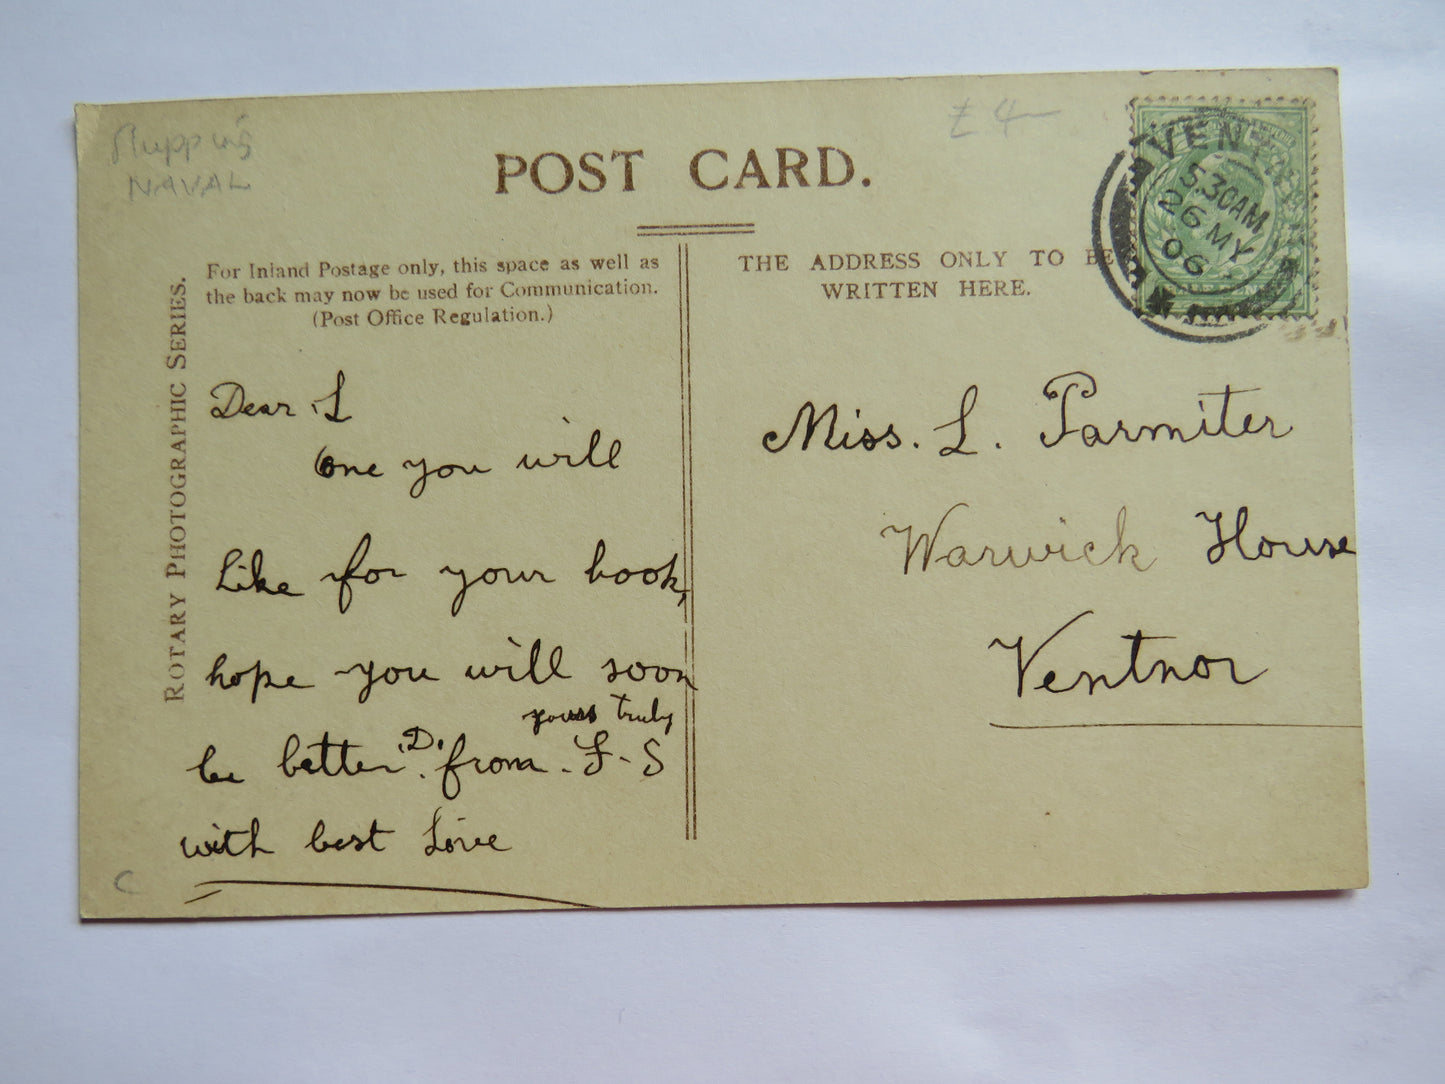 Shipping
NAVAL
£4-
POST CARD.
VENT
5.30AM
26 MY
06
ROTARY PHOTOGRAPHIC SERIES.
For Inland Postage only, this space as well as
the back may now be used for Communication.
(Post Office Regulation.)
THE ADDRESS ONLY TO BE
WRITTEN HERE.
Dear L
one you will
like for your book,
hope you will soon
be better D. from F-S
yours truly
with best Love
Miss. L. Parmiter
Warwick House
Ventnor
C